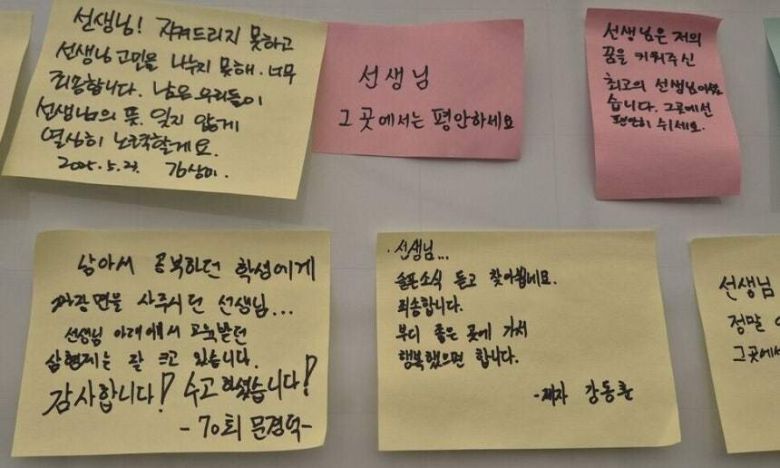 선생님! 지켜드리지 못하고
선생님 고민을 나누지 못해. 너무
죄송합니다. 남은 우리들이
선생님의 뜻. 잊지 않게
열심히 노력할게요.
2025. 5. 23. 김상미.
선생님
그 곳에서는 평안하세요
선생님은 저의
꿈을 키워주신
최고의 선생님이셨
습니다. 그곳에선
편안히 쉬세요.
남아서 공부하던 학생에게
자장면을 사주시던 선생님...
선생님 아래에서 교육받던
삼형제는 잘 크고 있습니다.
감사합니다! 수고하셨습니다!
-70회 문경덕-
선생님...
슬픈소식 듣고 찾아뵙네요.
죄송합니다.
부디 좋은 곳에 가서
행복했으면 합니다.
-제자 강동훈
선생님
정말
그곳에서